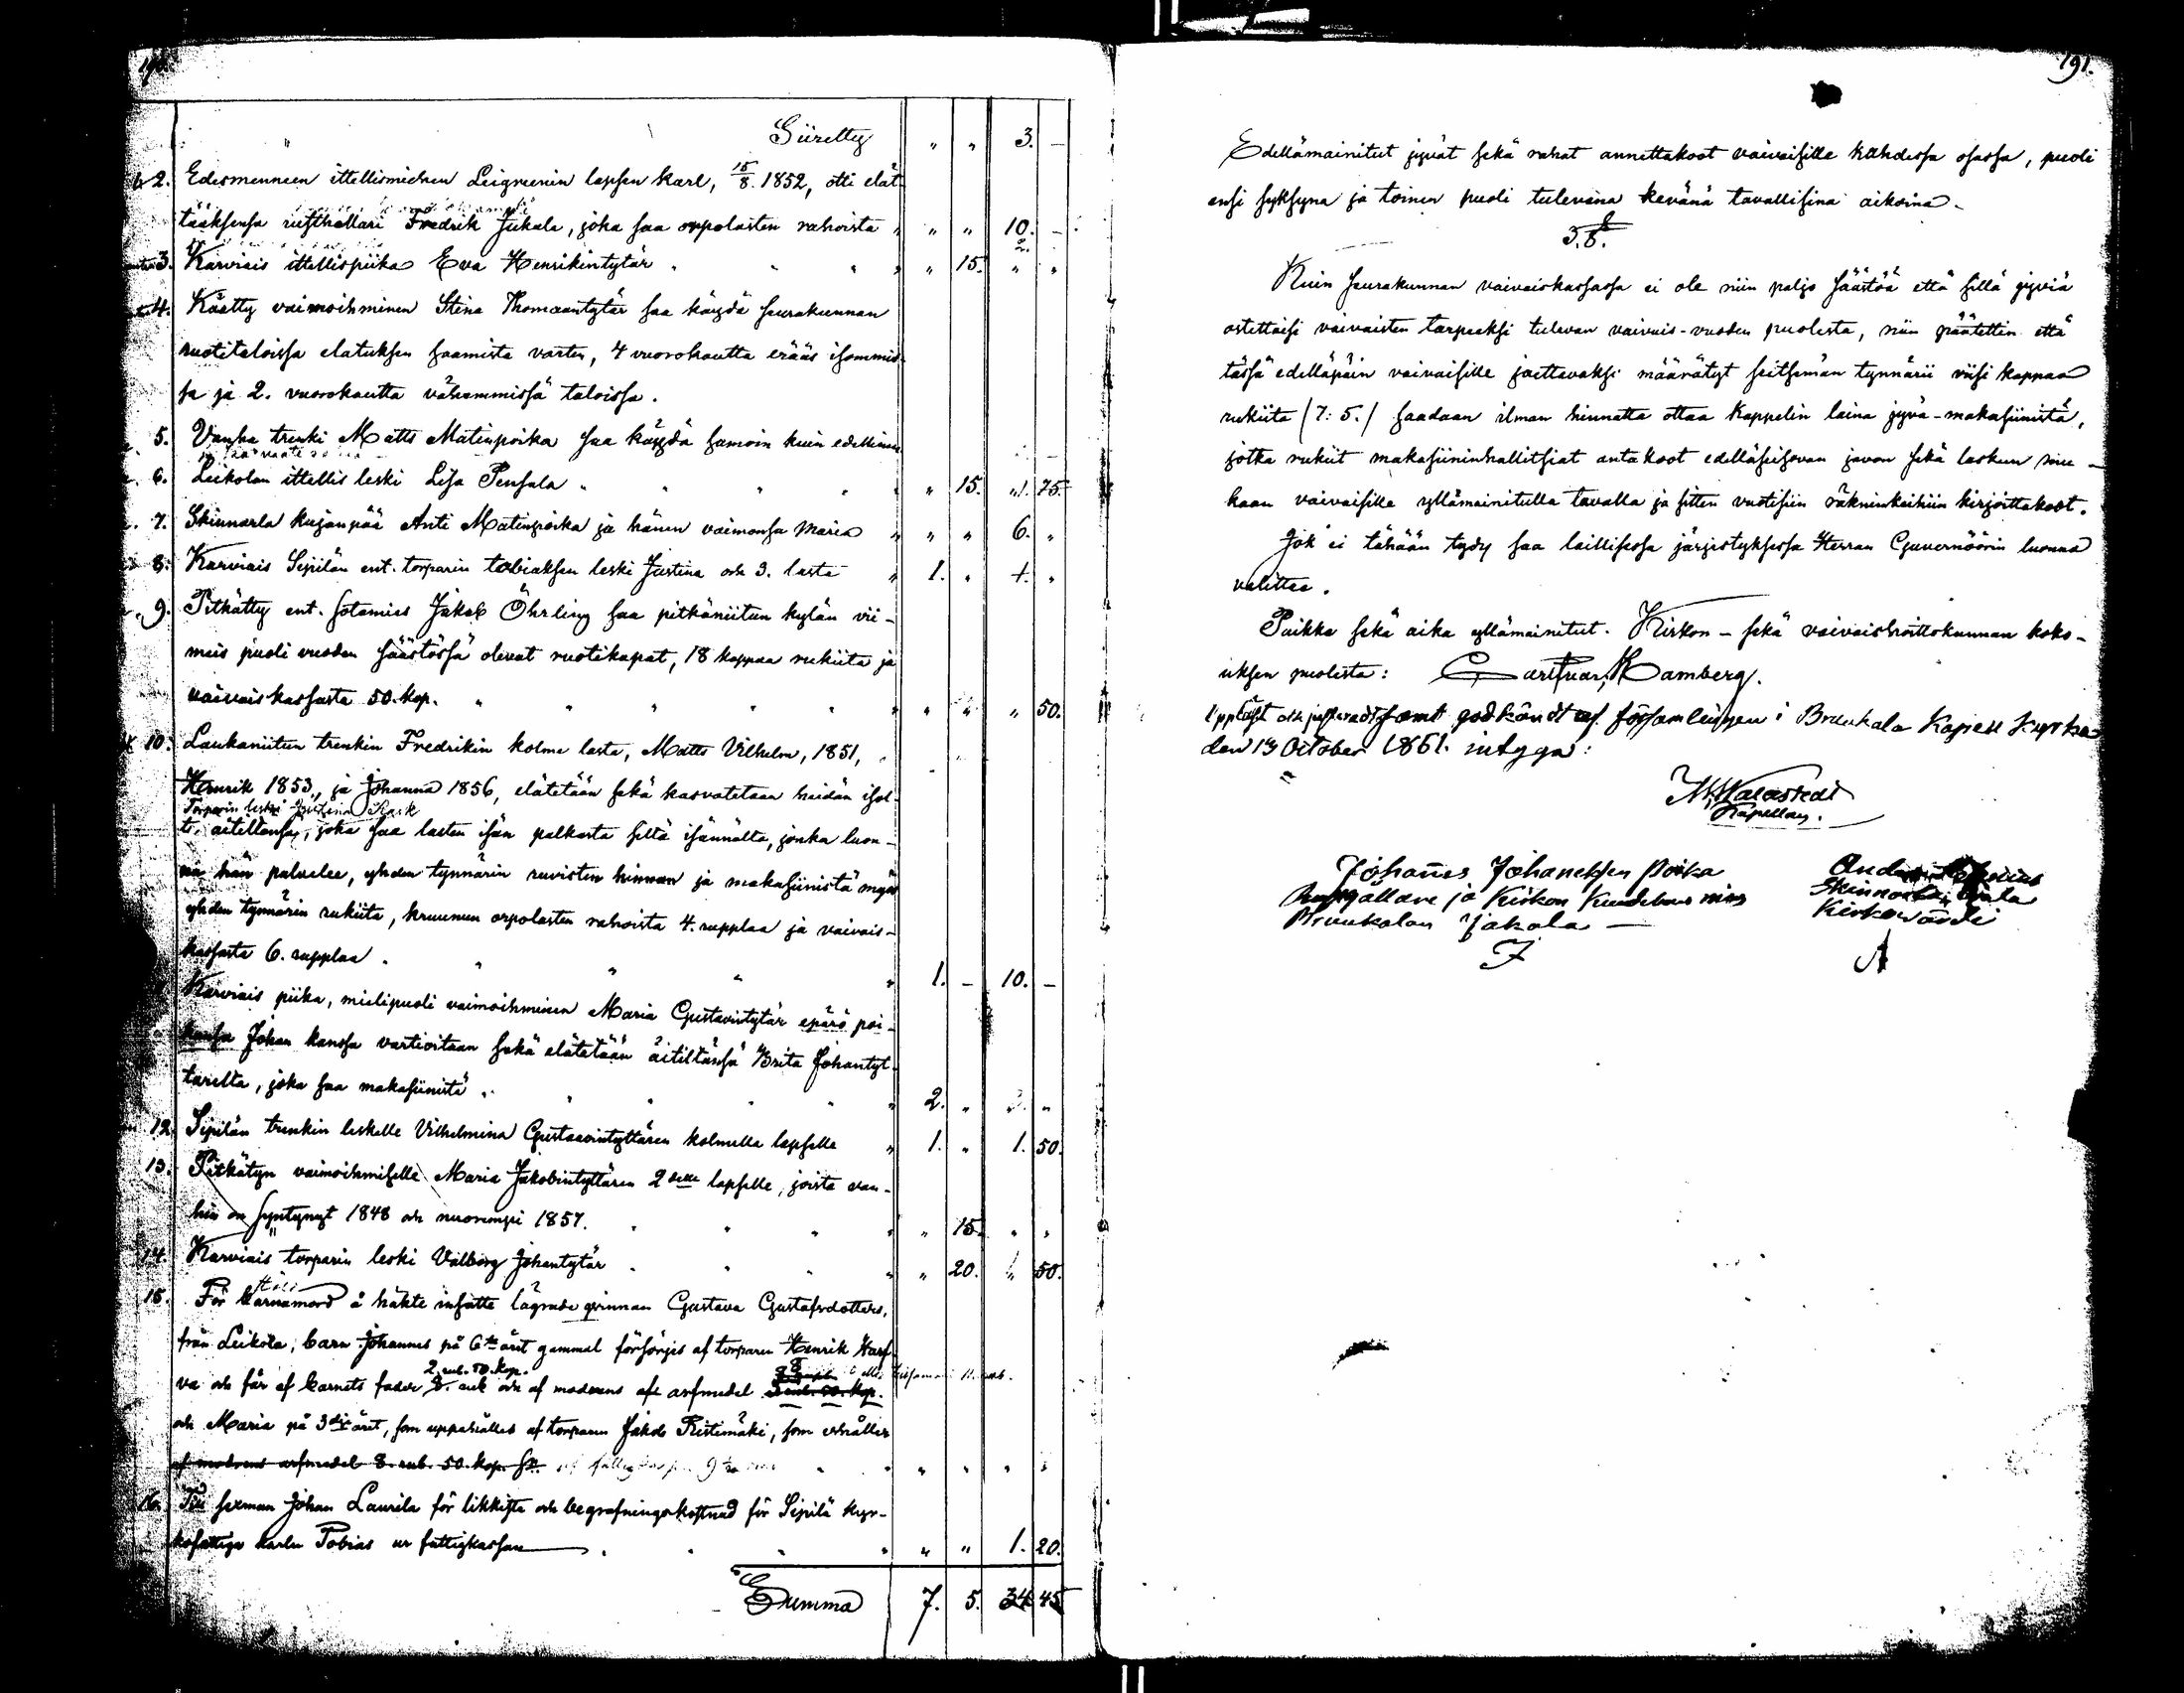 190.
Siiretty " " 3. –
2. Edesmenneen ittellismiehen Leigreenin lapsen Karl, 15/8. 1852, otti elät-
tääksensä rusthollari Fredrik Jukala, joka saa orpolasten rahoista " " 10. –
3. Karviais ittellispiika Eva Henrikintytär " 15. 2. "
4. Käätty vaimoihminen Stina Thomaantytär saa käydä seurakunnan
ruotitaloissa elatuksen saamista varten, 4 vuorokautta erääs isommis-
sa ja 2. vuorokautta vähemmissä taloissa.
5. Vanha trenki Matts Matinpoika saa käydä samoin kuin edellinen
6. Leikolan ittellis leski Lisa Pensala " 15. 1. 75.
7. Skinnarla kujanpää Anti Matinpoika ja hänen vaimonsa Maria " " 6. "
8. Karviais Sipilän ent. torparin tobiaksen leski Justina och 3. lasta 1. " 4. "
9. Pitkätty ent. sotamies Jakob Öhrling saa pitkäniitun kylän vii-
meis puoli vuoden säästössä olevat ruotikapat, 18 kappaa rukiita ja
vaivaiskassasta 50. kop. " " " 50.
10. Laukaniitun trenkin Fredrikin kolme lasta, Matts Vilhelm, 1851,
Henrik 1853, ja Johanna 1856, elätetään sekä kasvatetaan heidän isol-
Torparin leski Justina Kask
ta äiteltänsä, joka saa lasten isän palkasta siltä isännältä, jonka luon-
na hän palvelee, yhden tynnärin ruvisten hinnan ja makasiinistä myös
yhden tynnärin rukiita, kruunun orpolasten rahoista 4. rupplaa ja vaivais-
kassasta 6. rupplaa. 1. – 10. –
Karviais piika, mielipuoli vaimoihminen Maria Gustavintytär epärö poi-
kansa Johan kanssa vartioitaan sekä elätetään äitiltänsä Brita Johantyt-
täreltä, joka saa makasiinistä 2. " 3. "
12. Sipilän trenkin leskelle Vilhelmina Gustaavintyttären kolmelle lapselle 1. " 1. 50.
13. Pitkätyn vaimoihmiselle Maria Jakobintyttären 2 delle lapselle, joista van-
hin on syntynyt 1848 och nuorempi 1857. " 15. " "
14. Karviais torparin leski Valborg Johantytär " 20. " 50.
15. För barnamord å häkte insatte lägrade qvinnan Gustava Gustafsdotters,
från Leikola, barn Johannes på 6te året gammal försörjes af torparen Henrik Harf-
2 rub. 50. kop.
va och får af barnets fader 8. rub och af moderns aft arfmedel 3 rub. 50. kop.
och Maria på 3dje året, som uppehålles af torparen Jakob Ristimäki, som erhåller
af moderns arfmedel 8. rub. 50. kop. Sr. " " " "
16. Till sexman Johan Laurila för likkista och begrafningskostnad för Sipilä kyr-
kofattige karlen Tobias ur fattigkassan " " 1. 20.
Summa 7. 5. 34 45
191.
Edellämainitut jyvät sekä rahat annettakoot vaivaisille kahdessa osassa, puoli
ensi syksynä ja toinen puoli tulevana kevänä tavallisina aikoina.
3. §.
Kuin seurakunnan vaivaiskassassa ei ole niin paljo säästöä että sillä jyviä
ostettaisi vaivaisten tarpeeksi tulevan vaivais-vuoden puolesta, niin päätettin että
tässä edelläpäin vaivaisille jaettavaksi määrätyt seitsemän tynnärii viisi kappaa
rukiita (7: 5.) saadaan ilman hinnatta ottaa Kappelin laina jyvä-makasiinistä,
jotka rukiit makasiininhallitsiat antakoot edelläseisovan javon sekä laskun mu-
kaan vaivaisille yllämainitulla tavalla ja sitten vuotisiin räkninkeihiin kirjoittakoot.
Jok ei tähään tydy saa laillisessa järjestyksessä Herran Guvernöörin luonna
valittaa.
Paikka sekä aika yllämainitut. Kirkon- sekä vaivaishoittokunnan koko-
uksen puolesta: Carl Bamberg.
Uppläst och justeradt samt godkändt af församlingen i Bruukala Kapell Kyrka
den 13 October 1861. intygar:
Kapellan.
Johannes Johaneksen Poika
ja Kirkon
Bruukalan Jakola
J
Skinnarla
Kirkovärdi
A